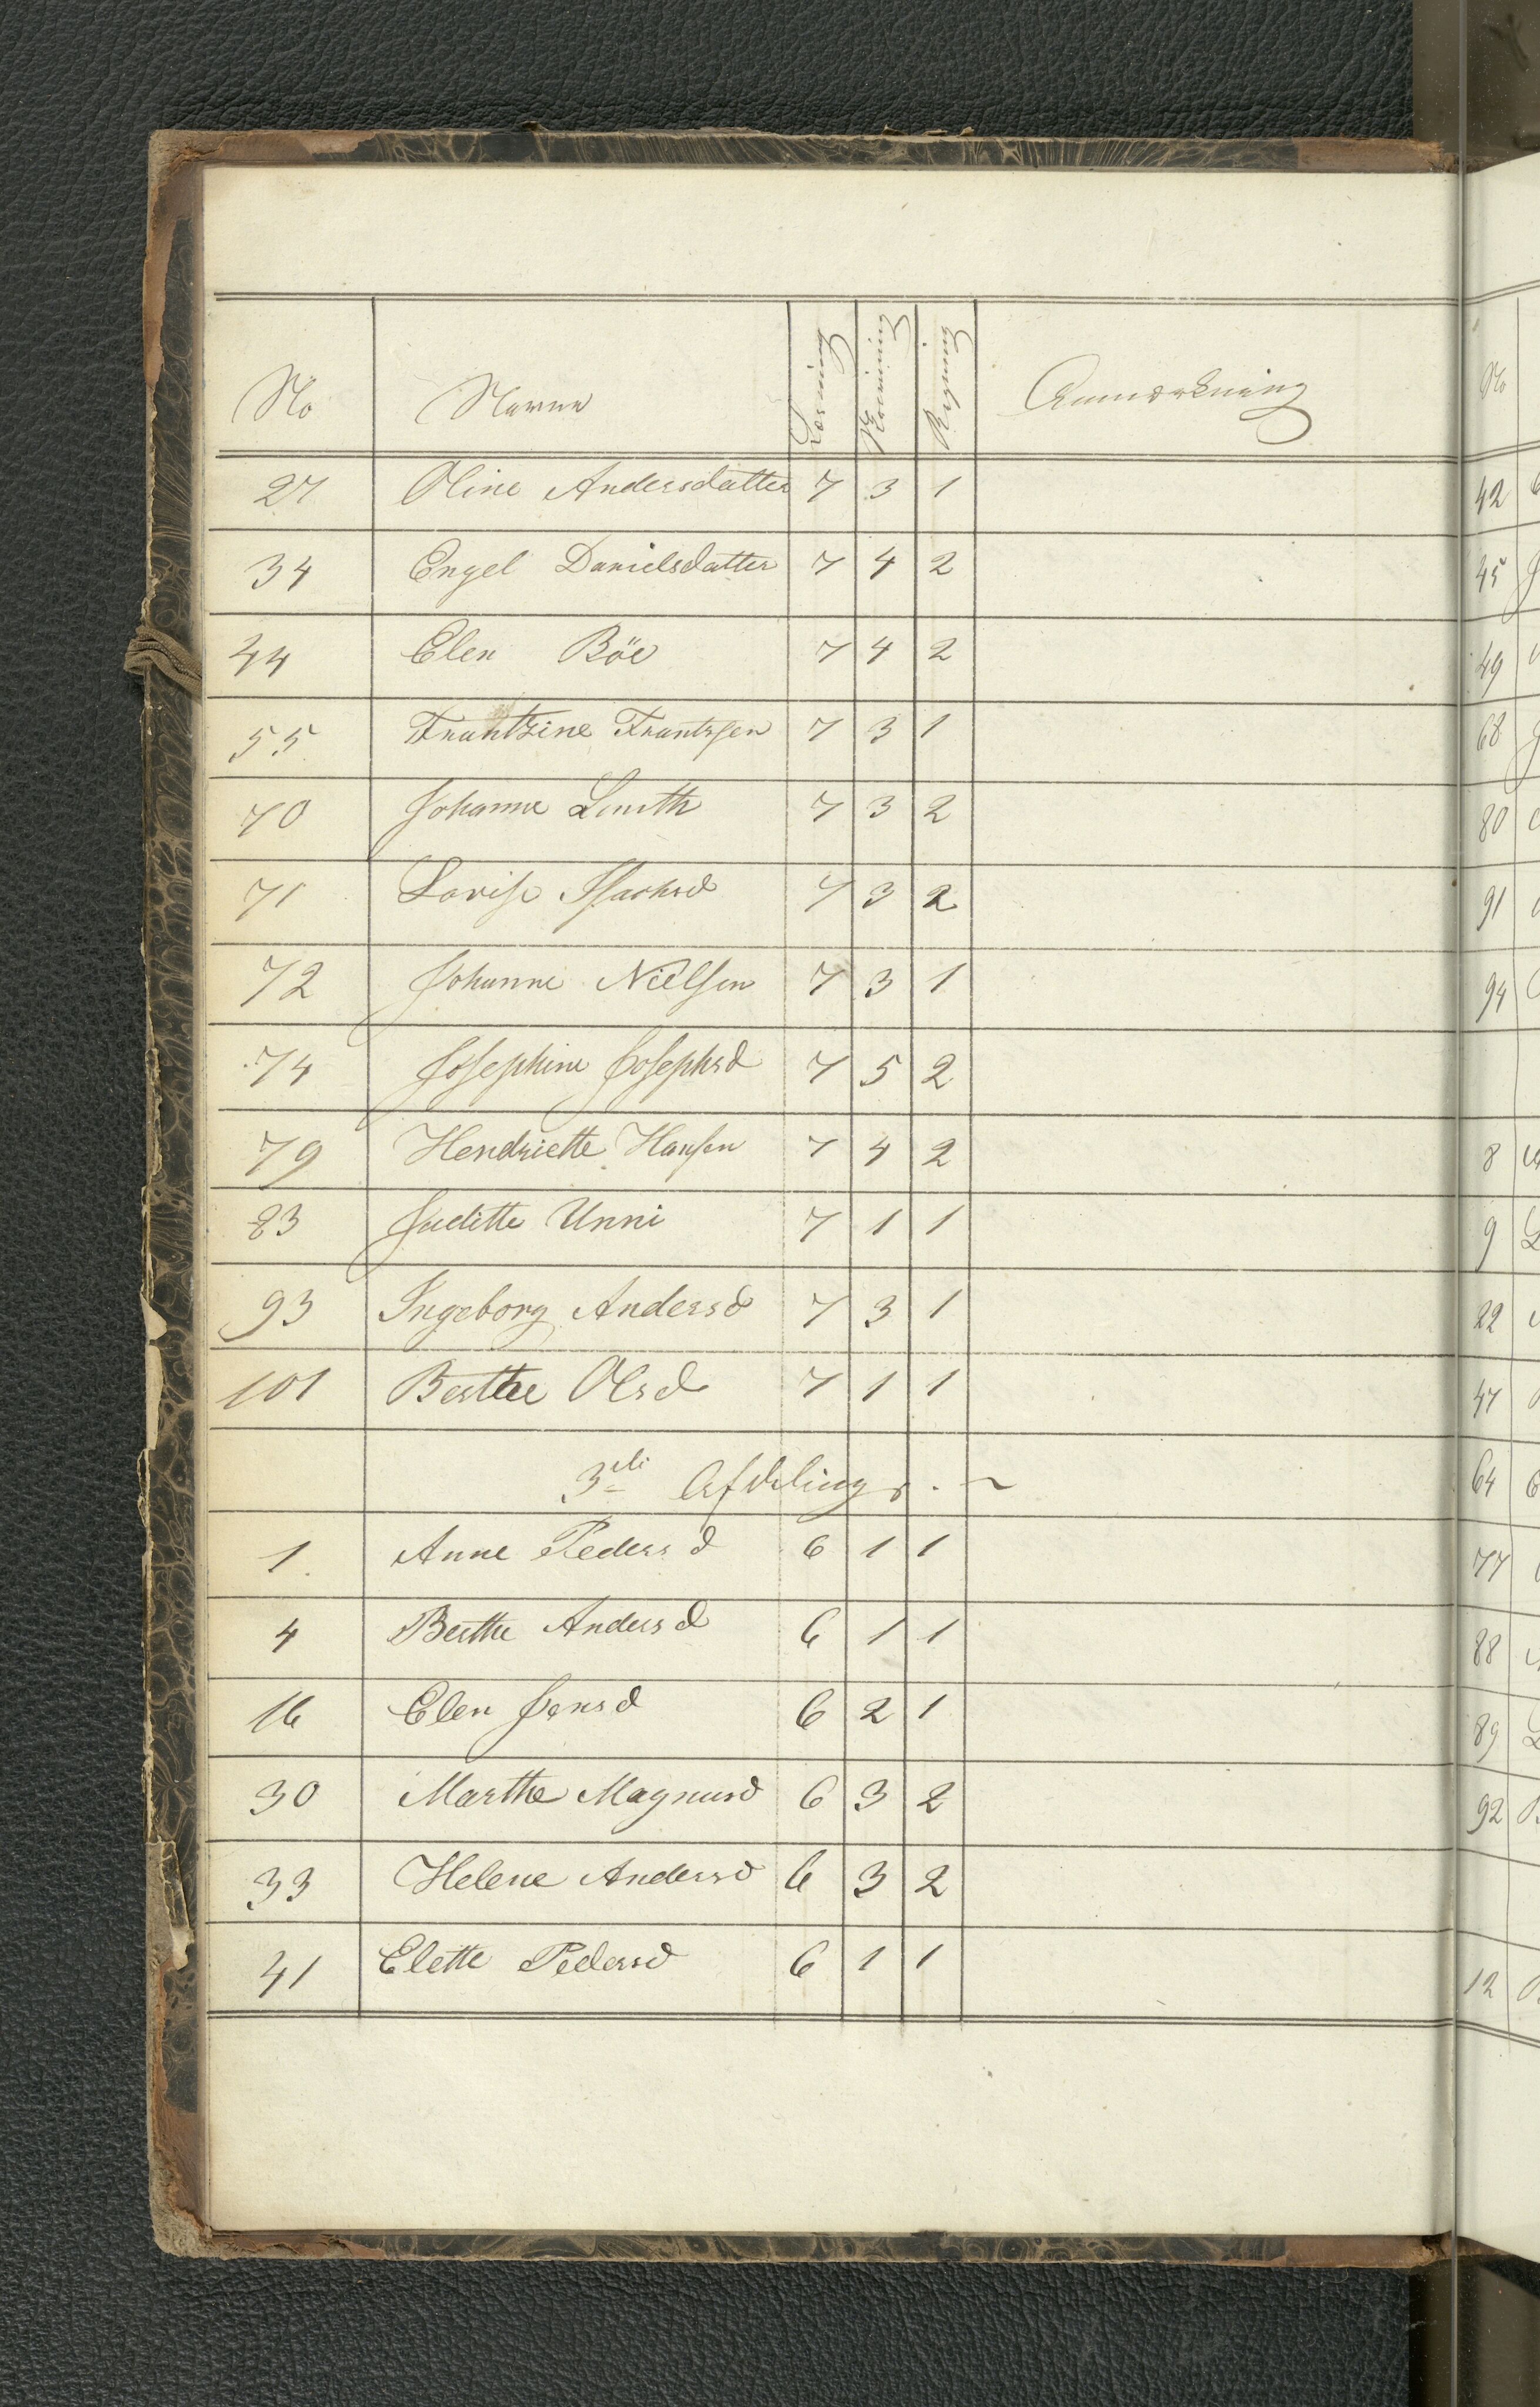 No Navne Læsning Skrivning Regning Anmærkning
27 Oline Andersdatter 7 3 1
34 Engel Danielsdatter 7 4 2
44 Elen Böe 7 4 2
55 Frantzine Frantzsen 7 3 1
70 Johanne Smith 7 3 2
71 Lovise Isachsd 7 3 2
72 Johanne Nielsen 7 3 1
74 Josephine Josephsd 7 5 2
79 Hendriette Hansen 7 4 2
83 Juditte Unni 7 1 1
93 Ingeborg Andersd 7 3 1
101 Berthe Olsd 7 1 1
3die Afdeling
1 Anne Pedersd 6 1 1
4 Berthe Andersd 6 1 1
16 Elen Jensd 6 2 1
30 Marthe Magnusd 6 3 2
33 Helene Andersd 6 3 2
41 Elette Pedersd 6 1 1
No
42
45
49
68
80
91
94
8
9
22
47
64
77
88
89
92
12